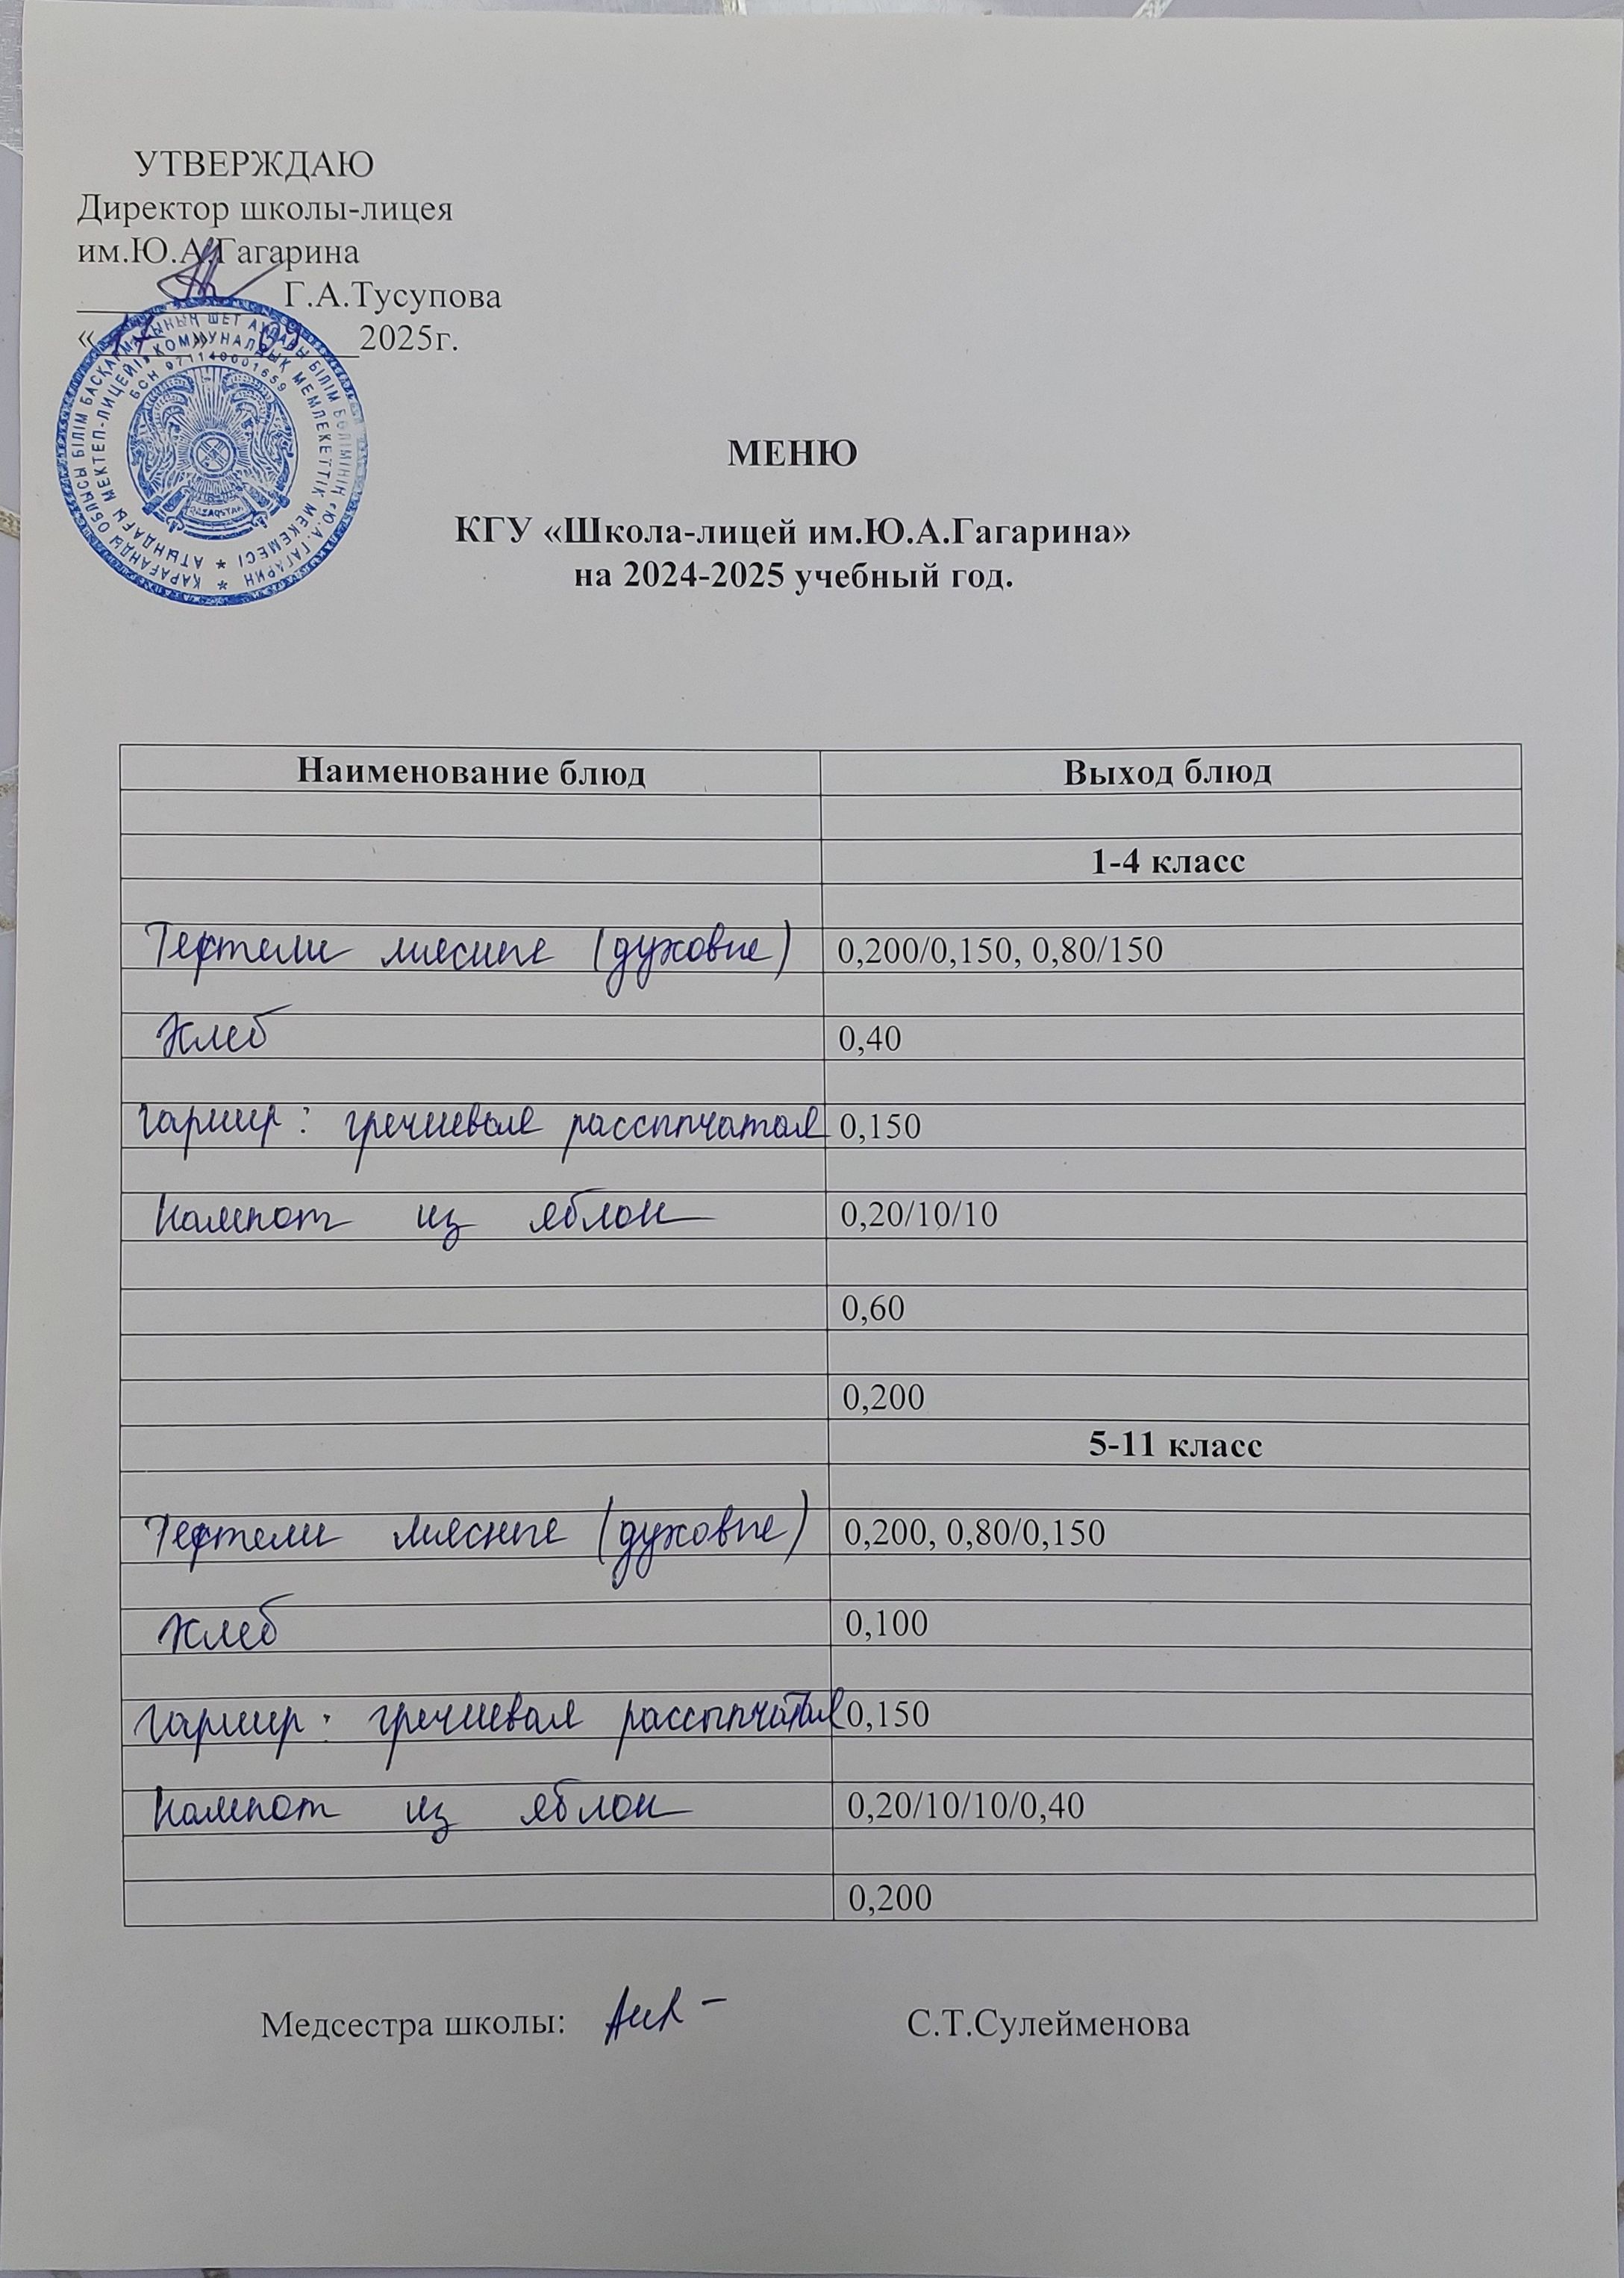 УТВЕРЖДАЮ
Директор школы-лицея
им.Ю.А.Гагарина
Г.А.Тусупова
«17» 2025г.
ҚАРАҒАНДЫ ОБЛЫСЫ БІЛІМ БАСҚАРМАСЫНЫҢ ШЕТ АУДАНЫ БІЛІМ БӨЛІМІНІҢ «Ю.А.ГАГАРИН
АТЫНДАҒЫ МЕКТЕП-ЛИЦЕЙІ» КОММУНАЛДЫҚ МЕМЛЕКЕТТІК МЕКЕМЕСІ
БСН 971140001659
QAZAQSTAN
МЕНЮ
КГУ «Школа-лицей им.Ю.А.Гагарина»
на 2024-2025 учебный год.
Наименование блюд Выход блюд
1-4 класс
Тефтели мясные (духовые) 0,200/0,150, 0,80/150
Хлеб 0,40
Гарнир: гречневая рассыпчатая 0,150
Компот из яблок 0,20/10/10
0,60
0,200
5-11 класс
Тефтели мясные (духовые) 0,200, 0,80/0,150
Хлеб 0,100
Гарнир: гречневая рассыпчатая 0,150
Компот из яблок 0,20/10/10/0,40
0,200
Медсестра школы: С.Т.Сулейменова